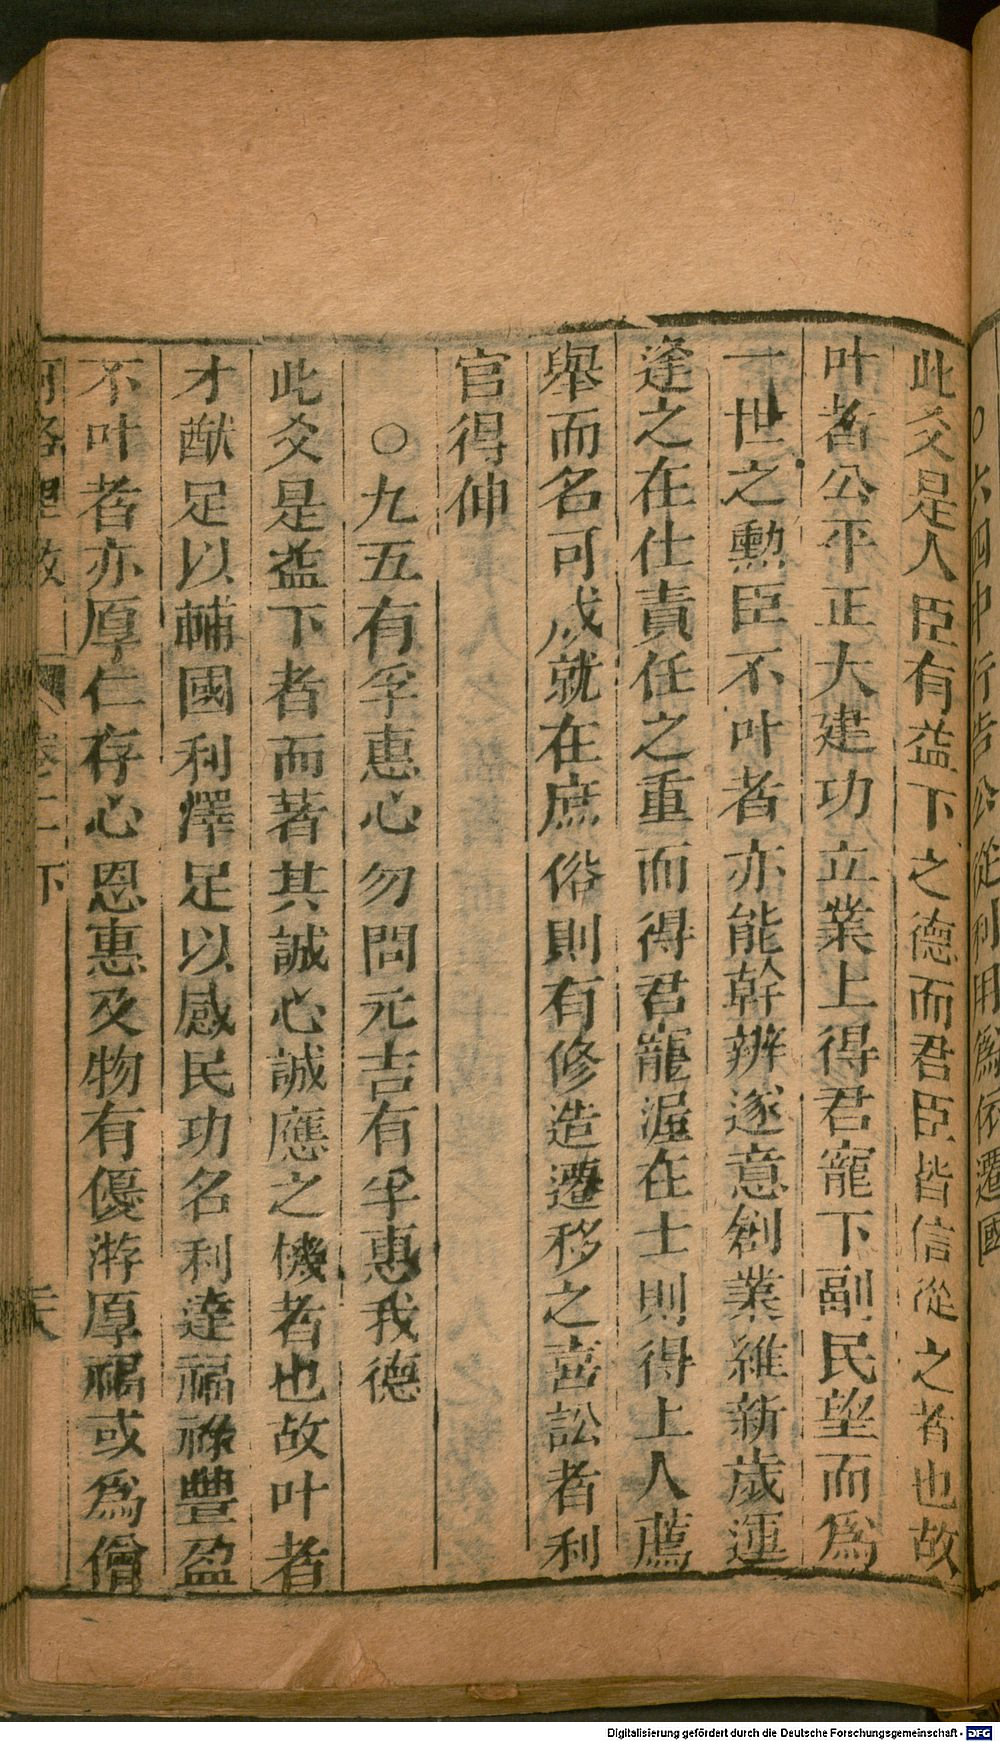 ○六四中行告公從利用爲依遷國
此爻是人臣有益下之德而君臣皆信從之者也故
叶者公平正大建功立業上得君寵下副民望而爲
一世之勳臣不叶者亦能幹辨遂意創業維新歲運
逢之在仕責任之重而得君寵渥在士則得上人薦
舉而名可成就在庶俗則有修造遷移之喜訟者利
官得伸
○九五有孚惠心勿問元吉有孚惠我德
此爻是益下者而著其誠心誠應之機者也故叶者
才猷足以輔國利澤足以感民功名利達福祿豐盈
不叶者亦厚仁存心恩惠及物有優游厚福或爲僧
河洛理數 卷二下
Digitalisierung gefördert durch die Deutsche Forschungsgemeinschaft - DFG